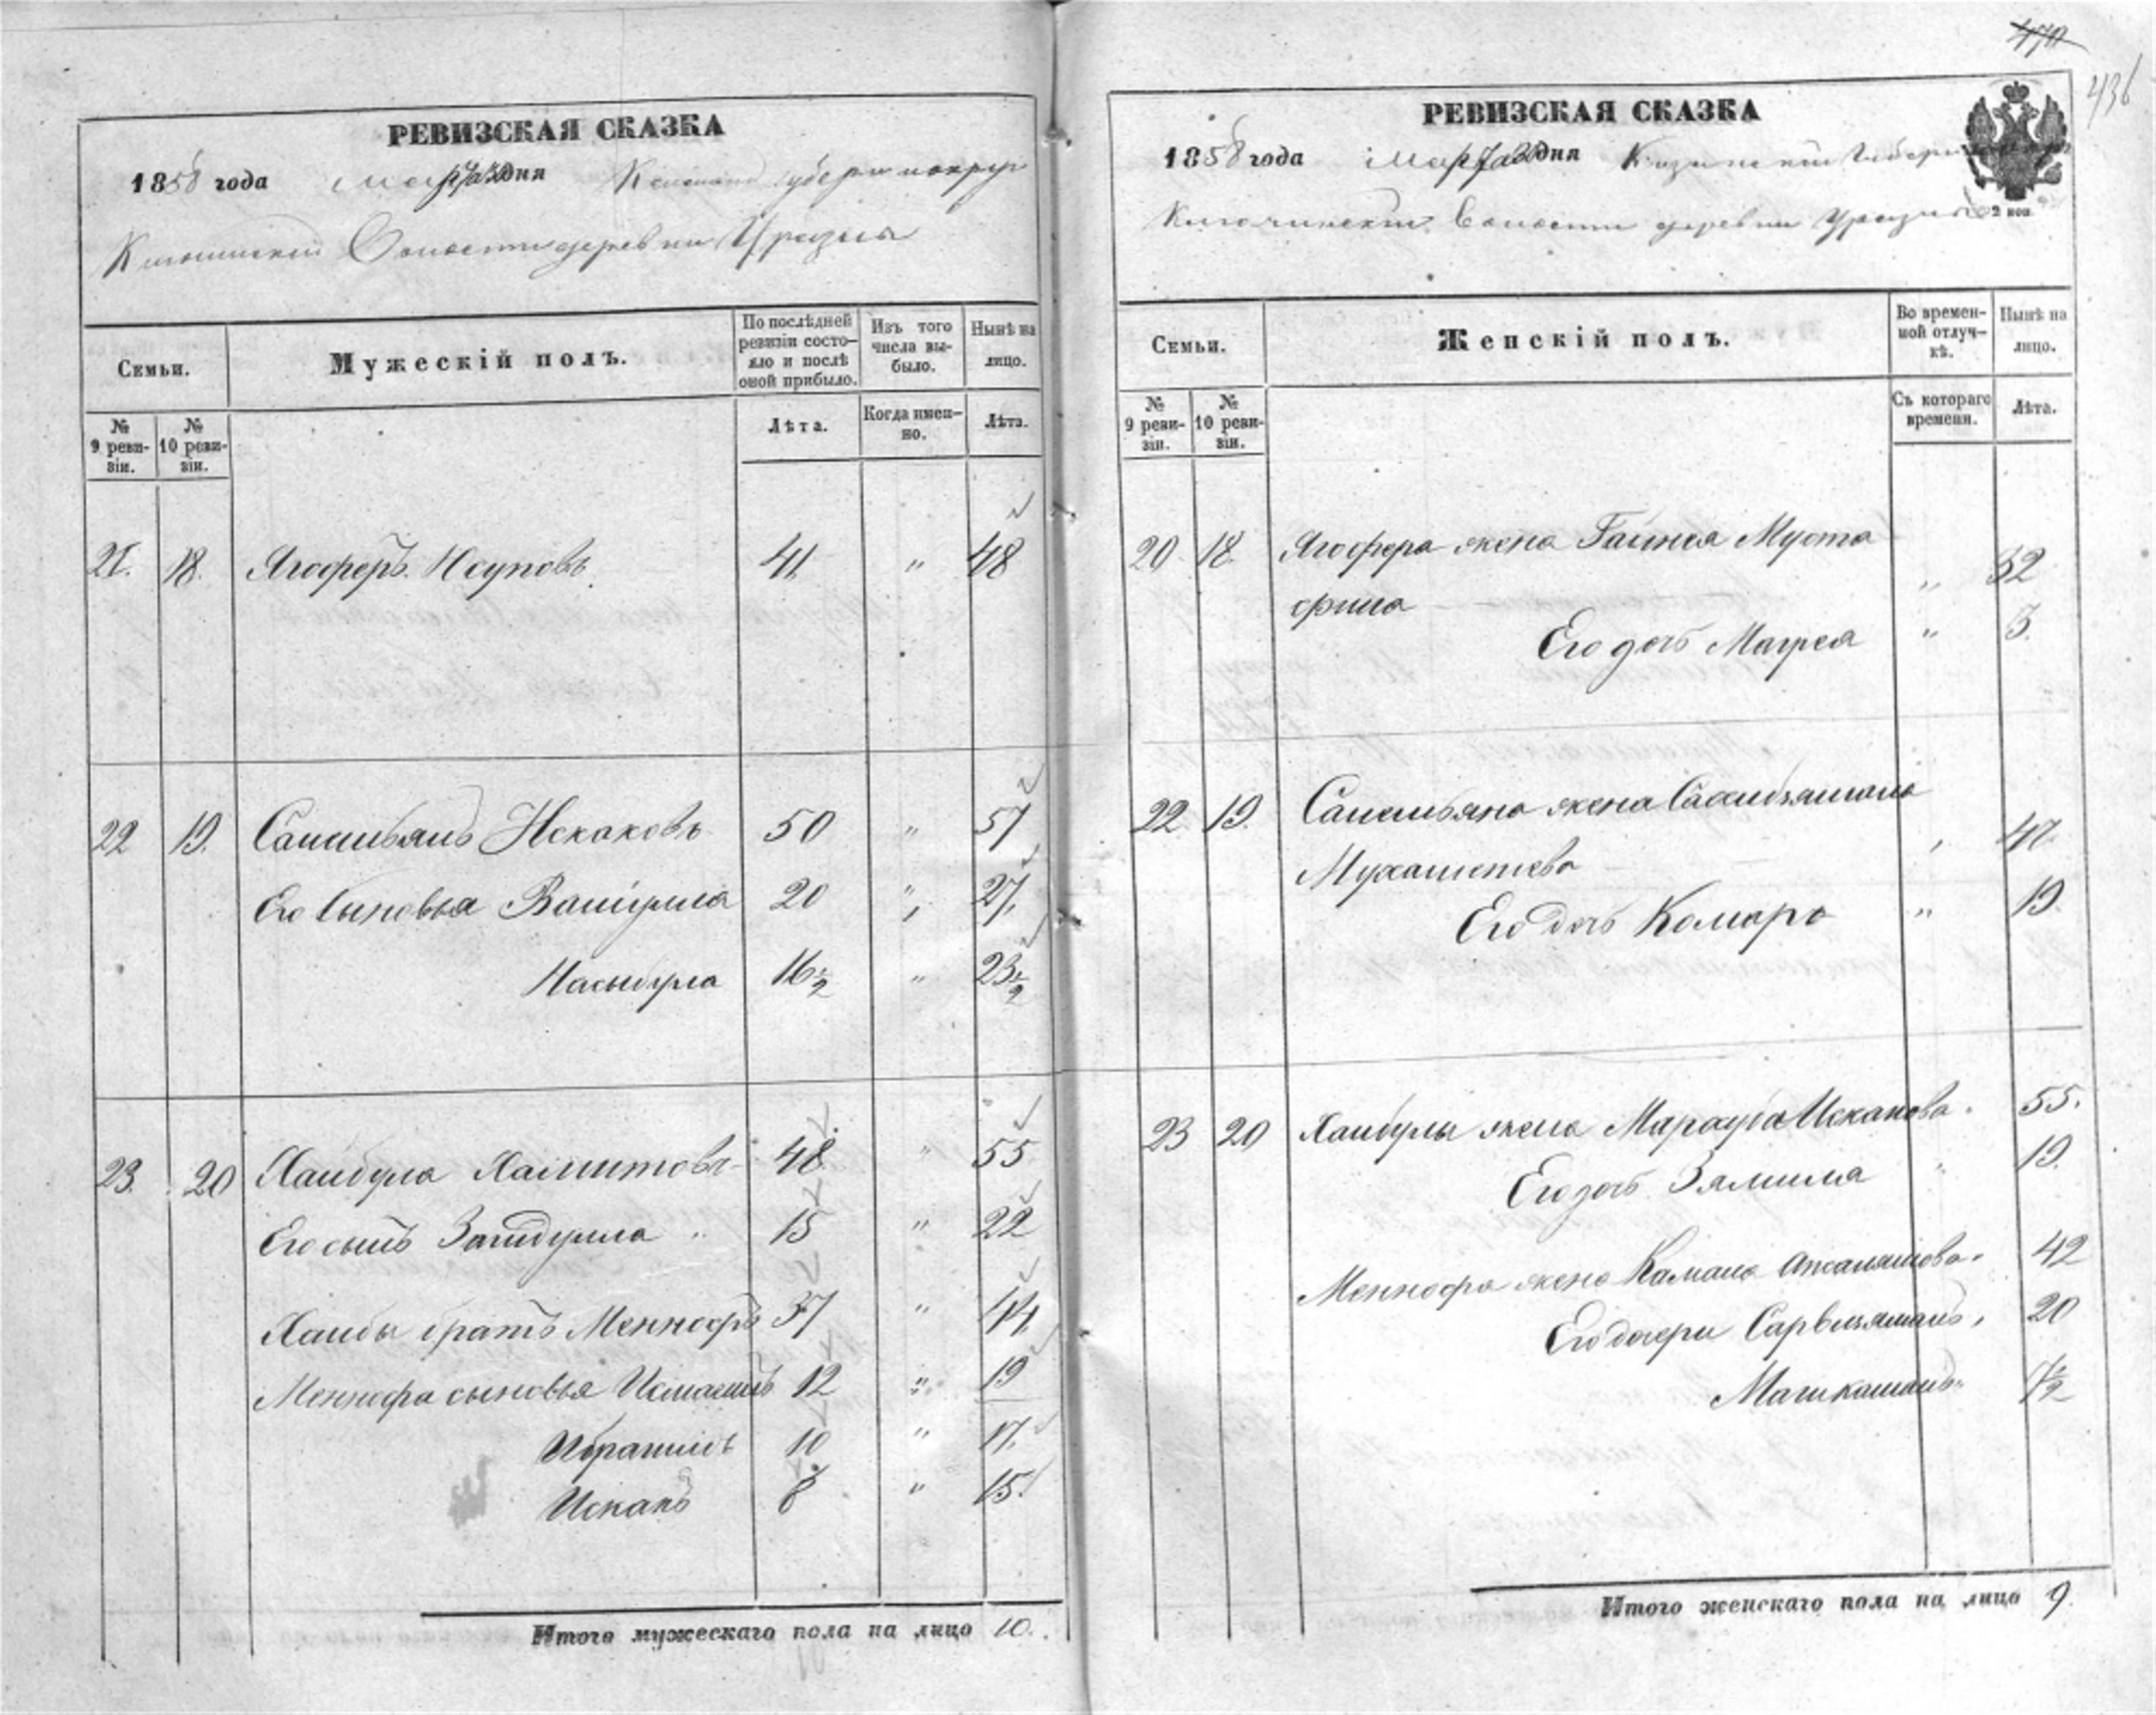 470
436
РЕВИЗСКАЯ СКАЗКА
1858 года марта 30 дня Казанской Губернии
Ключинской Волости деревни Уразлы
Семьи.
Мужескій полъ.
По послѣдней ревизіи состояло и послѣ оной прибыло.
Изъ того числа выбыло.
Нынѣ на лицо.
№ 9 ревизіи.
№ 10 ревизіи.
Лѣта.
Когда именно.
Лѣта.
21. 18. Ягоферъ Юсуповъ 41 " 48
22 19. Самильянъ Искаковъ 50 " 57
Его сыновья Вашулла 20 " 27
Насыбулла 16½ " 23½
23. 20 Хаибула Хамитовъ 48 " 55
Его сынъ Загидулла " 15 " 22
Хаибы братъМеннофъ 37 " 44
Меннофа сыновья Исмагилъ 12 " 19
Ибрагимъ 10 " 17.
Искакъ 8 " 15.
Итого мужескаго пола на лицо 10.
РЕВИЗСКАЯ СКАЗКА
1858 года марта дня Казанской Губернии
Ключинской Волости деревни Уразлы
2 коп.
Семьи.
Женскій полъ.
Во временной отлучкѣ.
Нынѣ на лицо.
№ 9 ревизіи.
№ 10 ревизіи.
Съ котораго времени.
Лѣта.
20 18. Ягофера жена Гайнея Муста
фина " 32
Его дочь Магрея " 3.
22 19. Самильяна жена
Мухаметева 47.
Его дочь Камаро " 19.
23 20 Хаибулы жена Марауба Искакова. 55.
Его дочь Зямиля " 19.
Меннофа жена Камала 42
Его дочери 20
½
Итого женскаго пола на лицо 9.